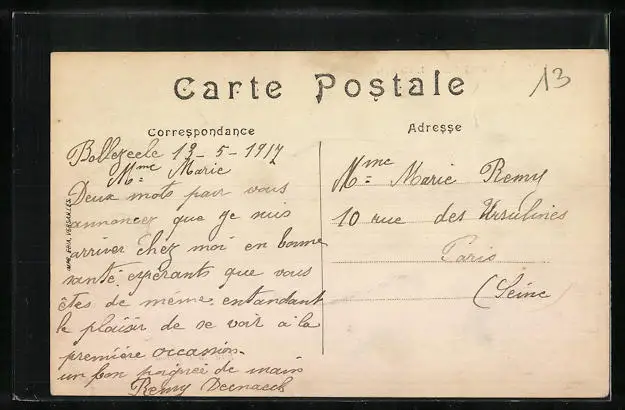 Carte Postale
13
Correspondance
Adresse
Bollezeele 13-5-1917
Mme Marie
Deux mots pour vous
annoncez que je suis
arriver chez moi en bonne
santé. espérants que vous
êtes de même. entandant
le plaisir de se voir a la
première occassion.
un bon poignée de main
Remy
Mme Marie Remy
10 rue des Ursulines
Paris
(Seine)
IMP. EDIA. VERSAILLES